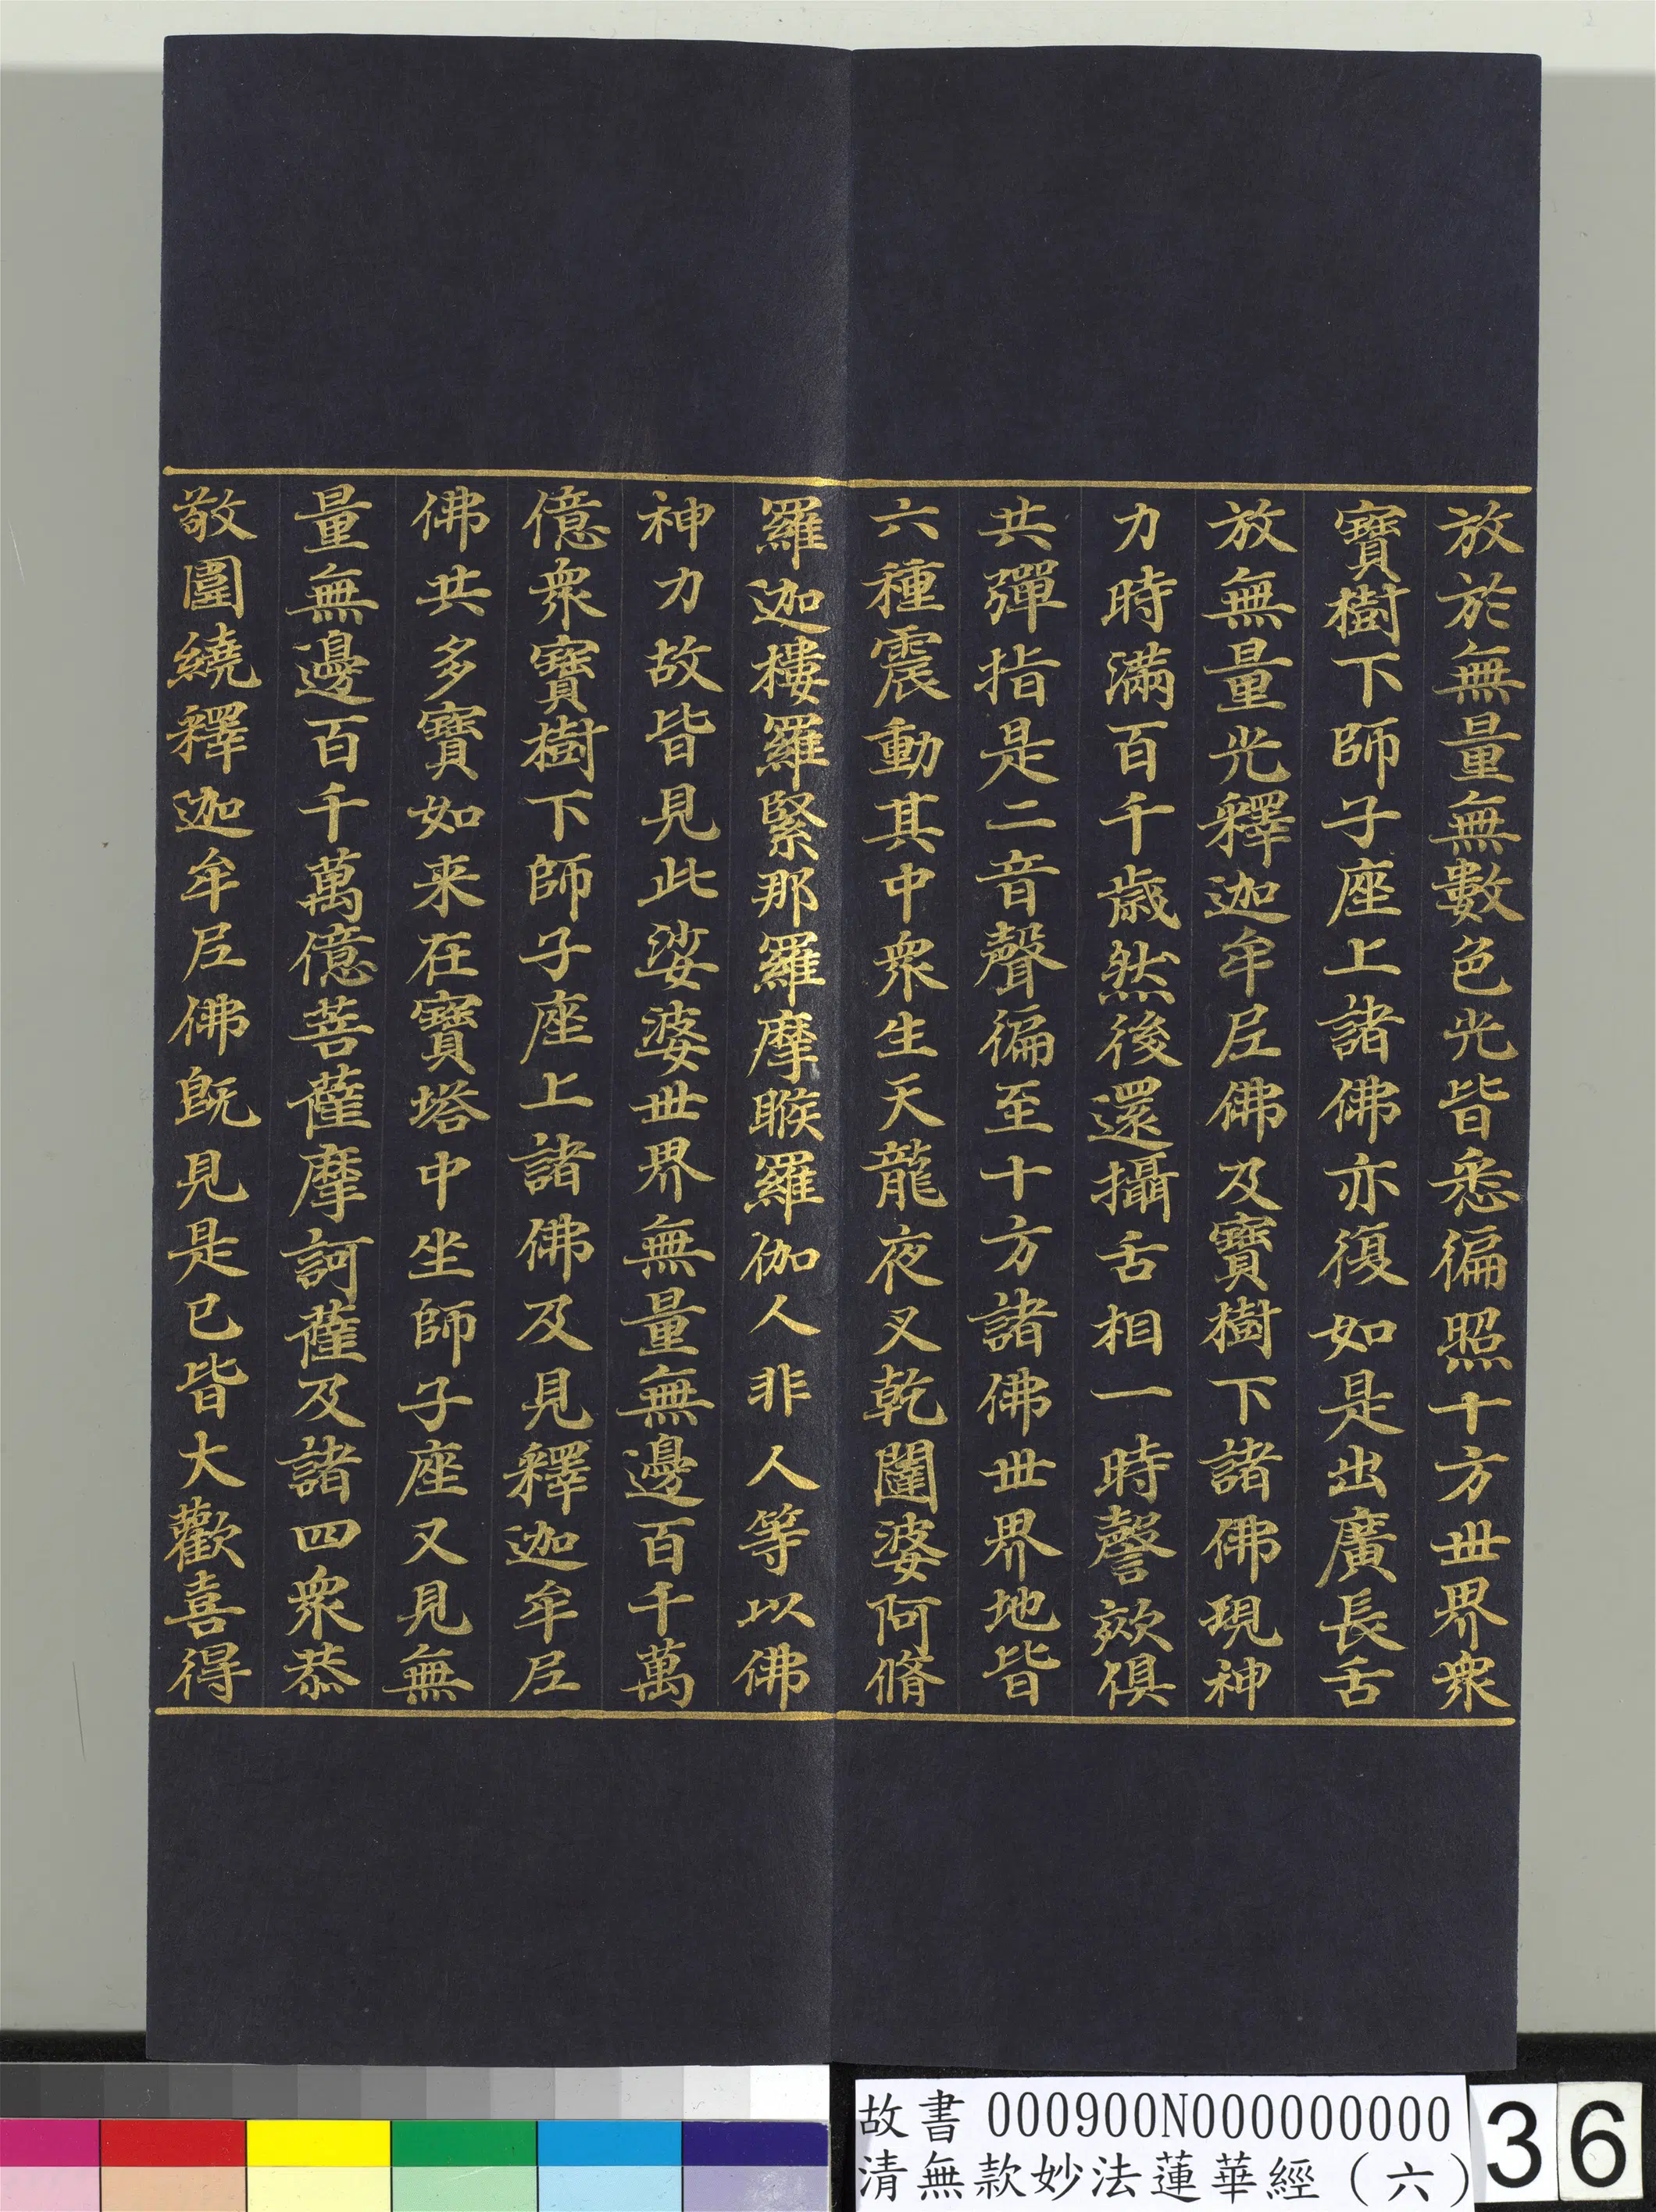 放於無量無數色光皆悉徧照十方世界衆
寶樹下師子座上諸佛亦復如是出廣長舌
放無量光釋迦牟尼佛及寶樹下諸佛現神
力時滿百千歲然後還攝舌相一時謦欬俱
共彈指是二音聲徧至十方諸佛世界地皆
六種震動其中衆生天龍夜叉乾闥婆阿脩
羅迦樓羅緊那羅摩睺羅伽人非人等以佛
神力故皆見此娑婆世界無量無邊百千萬
億衆寶樹下師子座上諸佛及見釋迦牟尼
佛共多寶如来在寶塔中坐師子座又見無
量無邊百千萬億菩薩摩訶薩及諸四衆恭
敬圍繞釋迦牟尼佛既見是已皆大歡喜得
故書 000900N000000000
清無款妙法蓮華經（六）
36